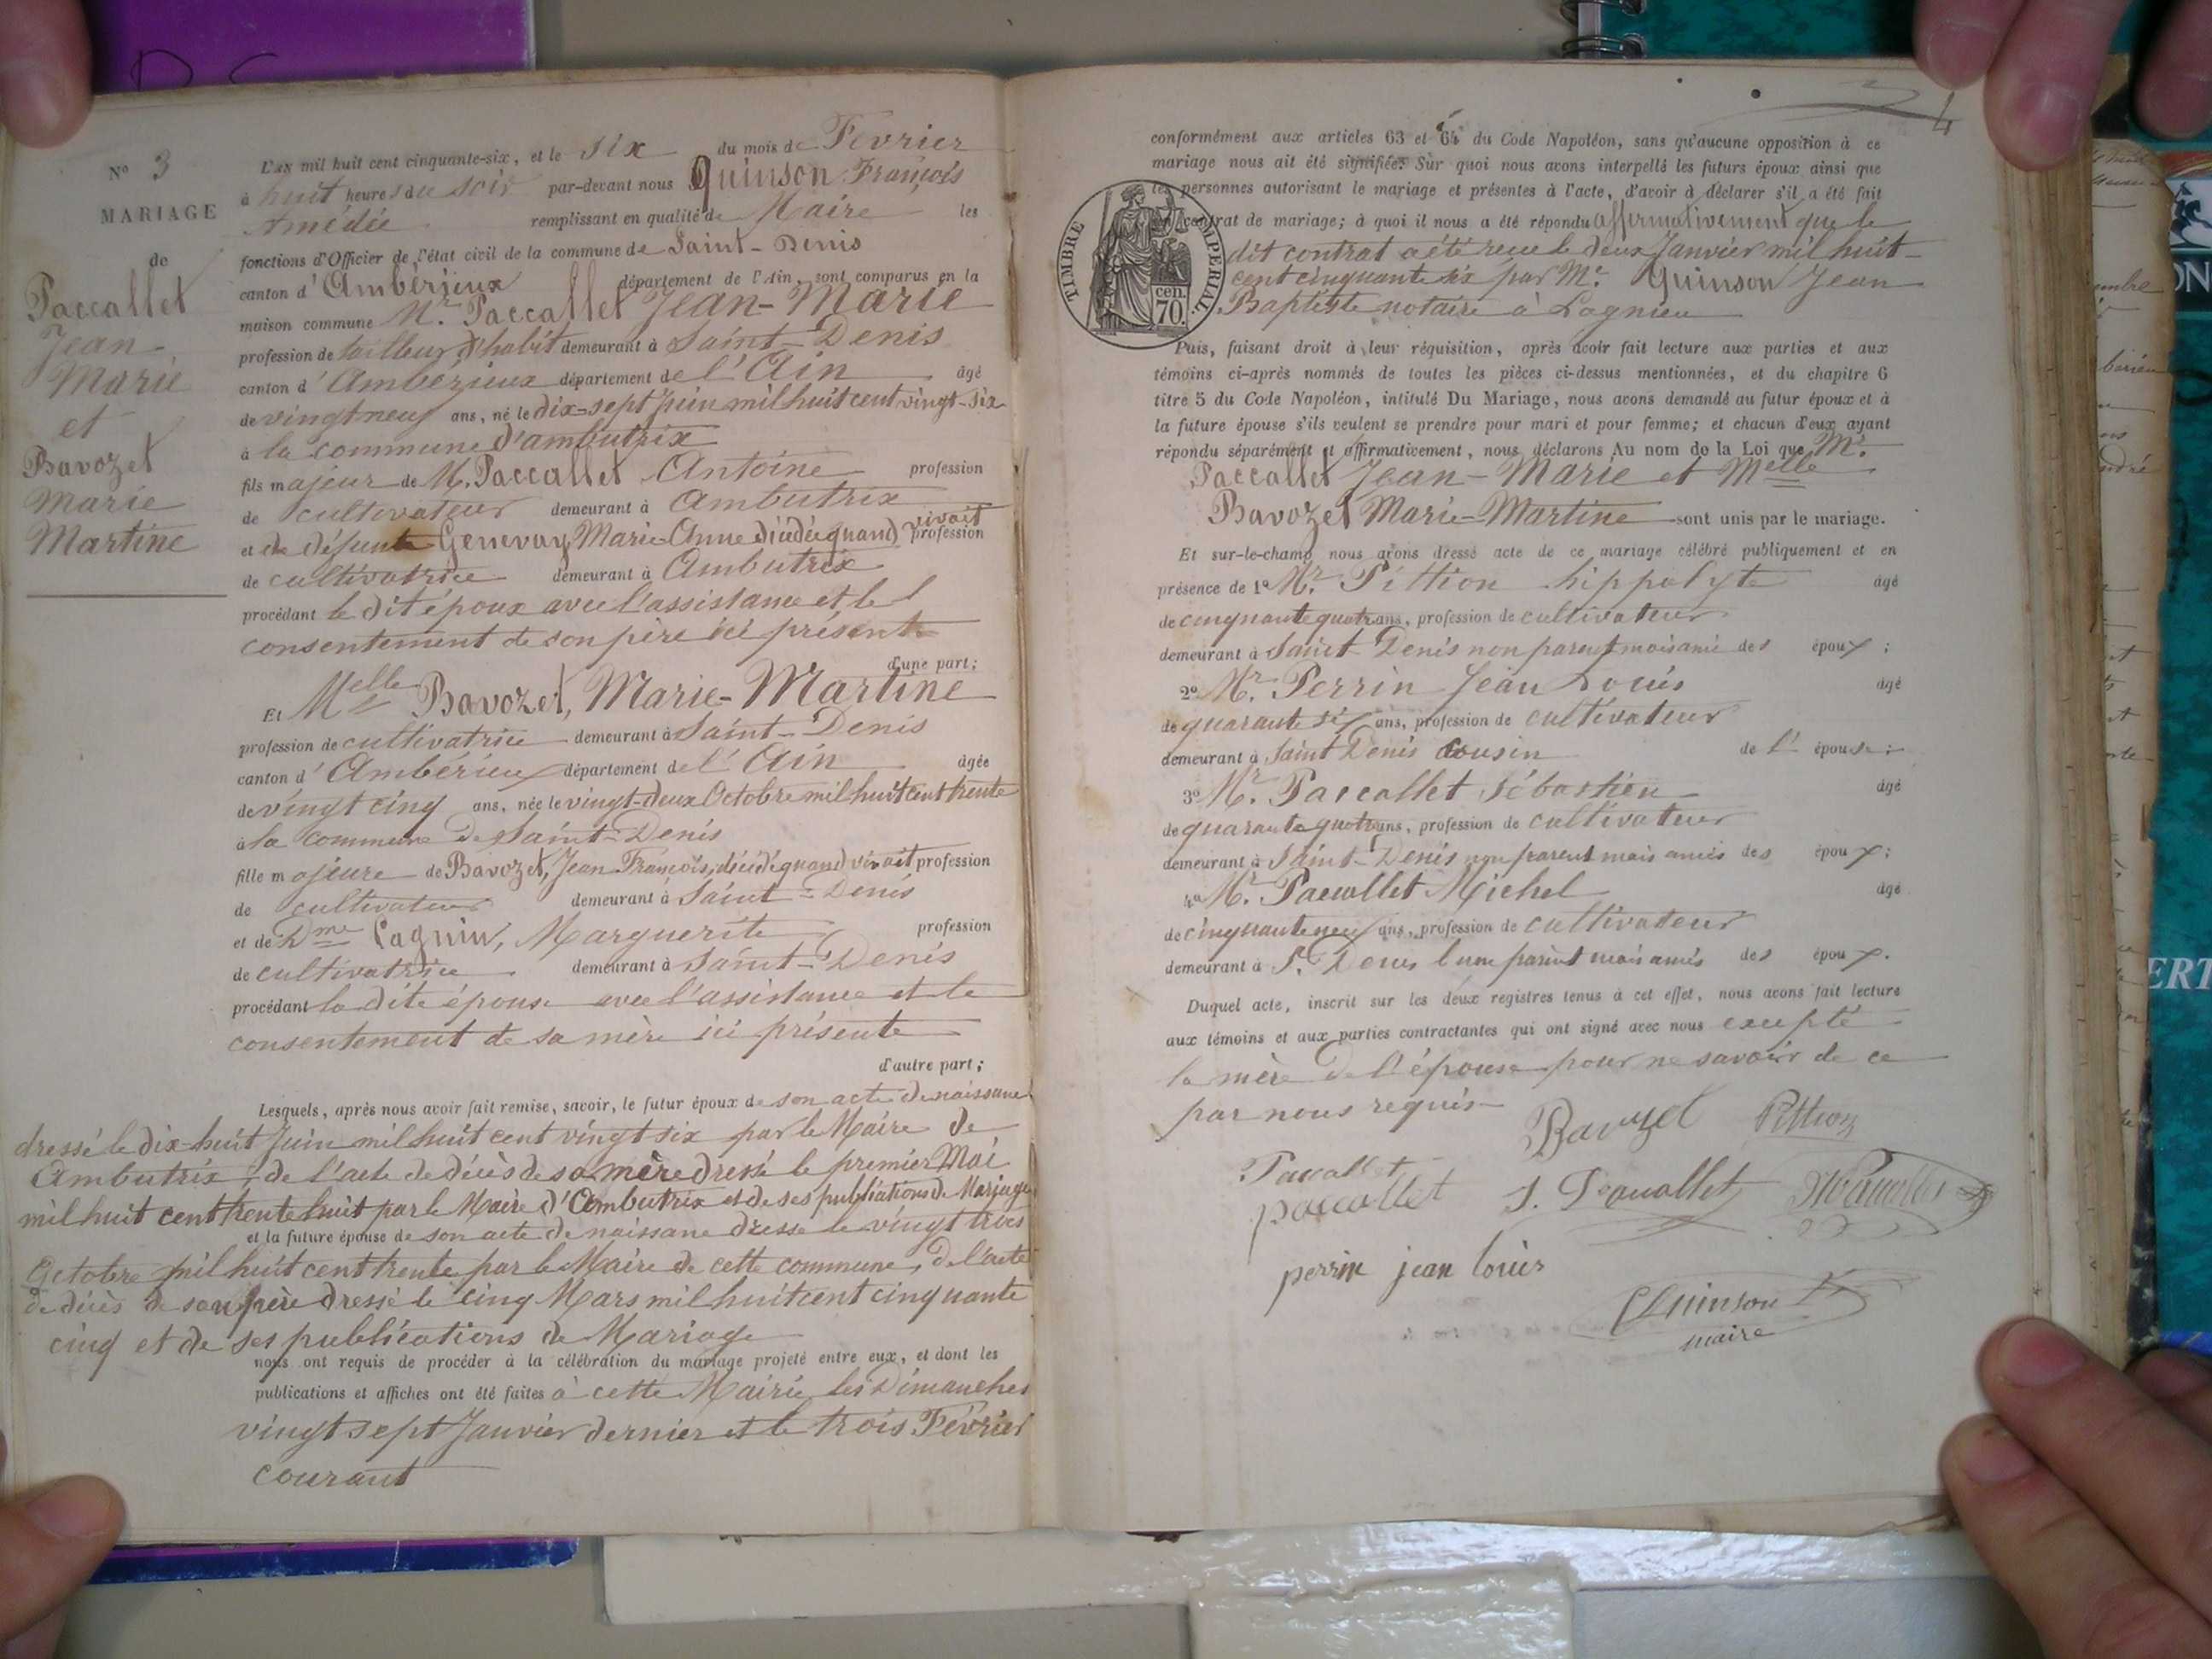 N° 3
MARIAGE
de
Paccallet
Jean
Marie
et
Bavozet
Marie
Martine
L'an mil huit cent cinquante-six, et le six du mois de Février
à huit heures du soir par-devant nous Quinson François
Amédée remplissant en qualité de Maire les
fonctions d'Officier de l'état civil de la commune de Saint-Denis
canton d'Ambérieux département de l'Ain, sont comparus en la
maison commune Mr. Paccallet Jean-Marie
profession de tailleur d'habit demeurant à Saint-Denis
canton d'Ambérieux département de l'Ain âgé
de vingt neuf ans, né le dix-sept juin mil huit cent vingt-six
à la commune d'ambutrix
fils majeur de M. Paccallet Antoine profession
de cultivateur demeurant à Ambutrix
et de défunte Genevay Marie-Anne décédée quand vivait profession
de cultivatrice demeurant à Ambutrix
procédant le dit époux avec l'assistance et le
consentement de son père ici présent
d'une part;
Et Melle Bavozet, Marie-Martine
profession de cultivatrice demeurant à Saint-Denis
canton d'Ambérieux département de l'Ain âgée
de vingt cinq ans, née le vingt-deux Octobre mil huit cent trente
à la commune de Saint-Denis
fille majeure de Bavozet, Jean François, décédé quand vivait profession
de cultivateur demeurant à Saint-Denis
et de Dme Cagnin, Marguerite profession
de cultivatrice demeurant à Saint-Denis
procédant la dite épouse avec l'assistance et le
consentement de sa mère ici présente
d'autre part;
Lesquels, après nous avoir fait remise, savoir, le futur époux de son acte de naissance
dressé le dix-huit Juin mil huit cent vingt six par le Maire de
Ambutrix, de l'acte de décès de sa mère dressé le premier Mai
mil huit cent trente huit par le Maire d'Ambutrix et de ses publications de Mariage
et la future épouse de son acte de naissance dressé le vingt trois
Octobre mil huit cent trente par le Maire de cette commune, de l'acte
de décès de son père dressé le cinq Mars mil huit cent cinquante
cinq et de ses publications de Mariage
nous ont requis de procéder à la célébration du mariage projeté entre eux, et dont les
publications et affiches ont été faites à cette Mairie les Dimanches
vingt sept Janvier dernier et le trois Février
courant
4
conformément aux articles 63 et 64 du Code Napoléon, sans qu'aucune opposition à ce
mariage nous ait été signifiée: Sur quoi nous avons interpellé les futurs époux ainsi que
les personnes autorisant le mariage et présentes à l'acte, d'avoir à déclarer s'il a été fait
un contrat de mariage; à quoi il nous a été répondu affirmativement que le
dit contrat a été reçu le deux Janvier mil huit
cent cinquante six par Mr. Quinson Jean
Baptiste notaire à Lagnieu
TIMBRE IMPERIAL
cen.
70.
Puis, faisant droit à leur réquisition, après avoir fait lecture aux parties et aux
témoins ci-après nommés de toutes les pièces ci-dessus mentionnées, et du chapitre 6
titre 5 du Code Napoléon, intitulé Du Mariage, nous avons demandé au futur époux et à
la future épouse s'ils veulent se prendre pour mari et pour femme; et chacun d'eux ayant
répondu séparément et affirmativement, nous déclarons Au nom de la Loi que Mr.
Paccallet Jean-Marie et Melle
Bavozet Marie-Martine sont unis par le mariage.
Et sur-le-champ nous avons dressé acte de ce mariage célébré publiquement et en
présence de 1° Mr. Pittion hippolyte âgé
de cinquante quatre ans, profession de cultivateur
demeurant à Saint-Denis non parent mois amis des époux;
2° Mr. Perrin Jean Louis âgé
de quarante six ans, profession de cultivateur
demeurant à Saint Denis Cousin de l'épouse;
3° Mr. Paccallet Sébastien âgé
de quarante quatre ans, profession de cultivateur
demeurant à Saint-Denis non parent mais amis des époux;
4° Mr. Paccallet Michel âgé
de cinquante neuf ans, profession de cultivateur
demeurant à St. Denis non parent mais amis des époux.
Duquel acte, inscrit sur les deux registres tenus à cet effet, nous avons fait lecture
aux témoins et aux parties contractantes qui ont signé avec nous excepté
la mère de l'épouse pour ne savoir de ce
par nous requis
Bavozet Pittion
Paccallet
paccallet S. Paccallet M Paccallet
perrin jean louis
Quinson
maire